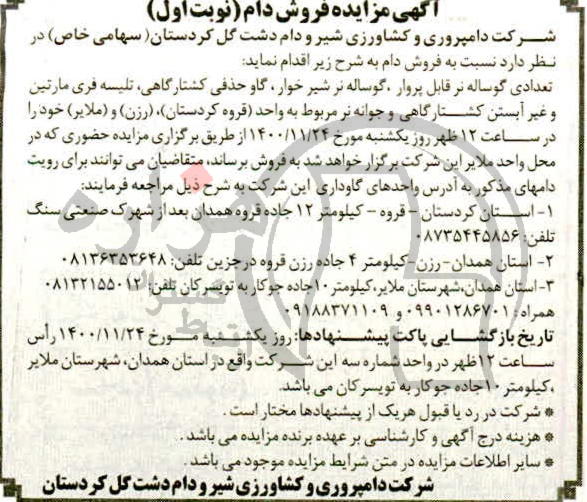 آگهی مزایده فروش دام (نوبت اول)
شرکت دامپروری و کشاورزی شیر و دام دشت گل کردستان( سهامی خاص) در
نظر دارد نسبت به فروش دام به شرح زیر اقدام نماید:
تعدادی گوساله نر قابل پروار ، گوساله نر شیر خوار ، گاو حذفی کشتارگاهی، تلیسه فری مارتین
و غیر آبستن کشتارگاهی و جوانه نر مربوط به واحد (قروه کردستان)، (رزن) و (ملایر) خود را
در ساعت ۱۲ ظهر روز یکشنبه مورخ ۱۴۰۰/۱۱/۲۴ از طریق برگزاری مزایده حضوری که در
محل واحد ملایر این شرکت برگزار خواهد شد به فروش برساند، متقاضیان می توانند برای رویت
دامهای مذکور به آدرس واحدهای گاوداری این شرکت به شرح ذیل مراجعه فرمایند:
۱- استان کردستان - قروه - کیلومتر ۱۲ جاده قروه همدان بعد از شهرک صنعتی سنگ
تلفن: ۰۸۷۳۵۴۴۵۸۵۶
۲- استان همدان-رزن-کیلومتر ۴ جاده رزن قروه درجزین تلفن: ۰۸۱۳۶۳۵۳۶۴۸
۳-استان همدان،شهرستان ملایر،کیلومتر ۱۰جاده جوکار به تویسرکان تلفن: ۰۸۱۳۲۱۵۵۰۱۲
همراه : ۰۹۹۰۱۲۸۶۷۰۱ و ۰۹۱۸۸۳۷۱۱۰۹
تاریخ بازگشایی پاکت پیشنهادها: روز یکشنبه مورخ ۱۴۰۰/۱۱/۲۴ رأس
ساعت ۱۲ظهر در واحد شماره سه این شرکت واقع در استان همدان، شهرستان ملایر
،کیلومتر ۱۰جاده جوکار به تویسرکان می باشد.
* شرکت در رد یا قبول هریک از پیشنهادها مختار است .
* هزینه درج آگهی و کارشناسی بر عهده برنده مزایده می باشد .
* سایر اطلاعات مزایده در متن شرایط مزایده موجود می باشد .
شرکت دامپروری و کشاورزی شیر و دام دشت گل کردستان